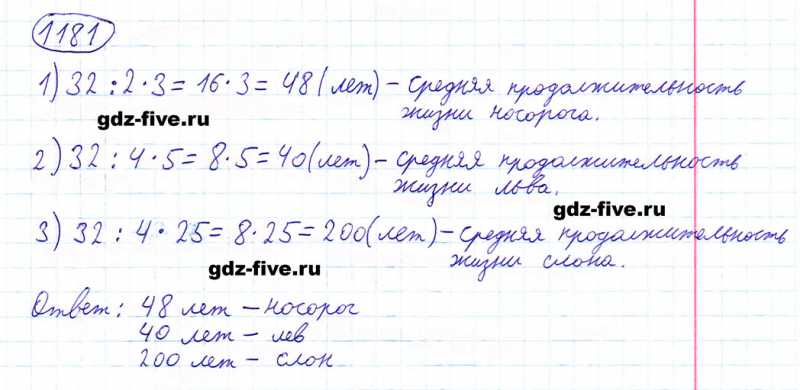 1181
1) 32 : 2 · 3 = 16 · 3 = 48 (лет) – средняя продолжительность
жизни носорога.
gdz-five.ru
2) 32 : 4 · 5 = 8 · 5 = 40 (лет) – средняя продолжительность
жизни льва.
gdz-five.ru
3) 32 : 4 · 25 = 8 · 25 = 200 (лет) – средняя продолжительность
жизни слона.
gdz-five.ru
Ответ: 48 лет – носорог
40 лет – лев
200 лет – слон